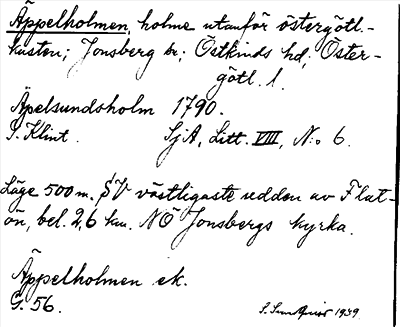 Äppelholmen, holme utanför östergötl.-
kusten; Jonsberg sn; Östkinds hd; Öster-
götl. l.
Äpelsundsholm 1790.
G. Klint. SjA, Litt. VIII, N:o 6.
Läge 500 m. SV västligaste udden av Flat-
ön, bel. 2,6 km. NÖ Jonsbergs kyrka.
Äppelholmen ek.
G. 56. 1939